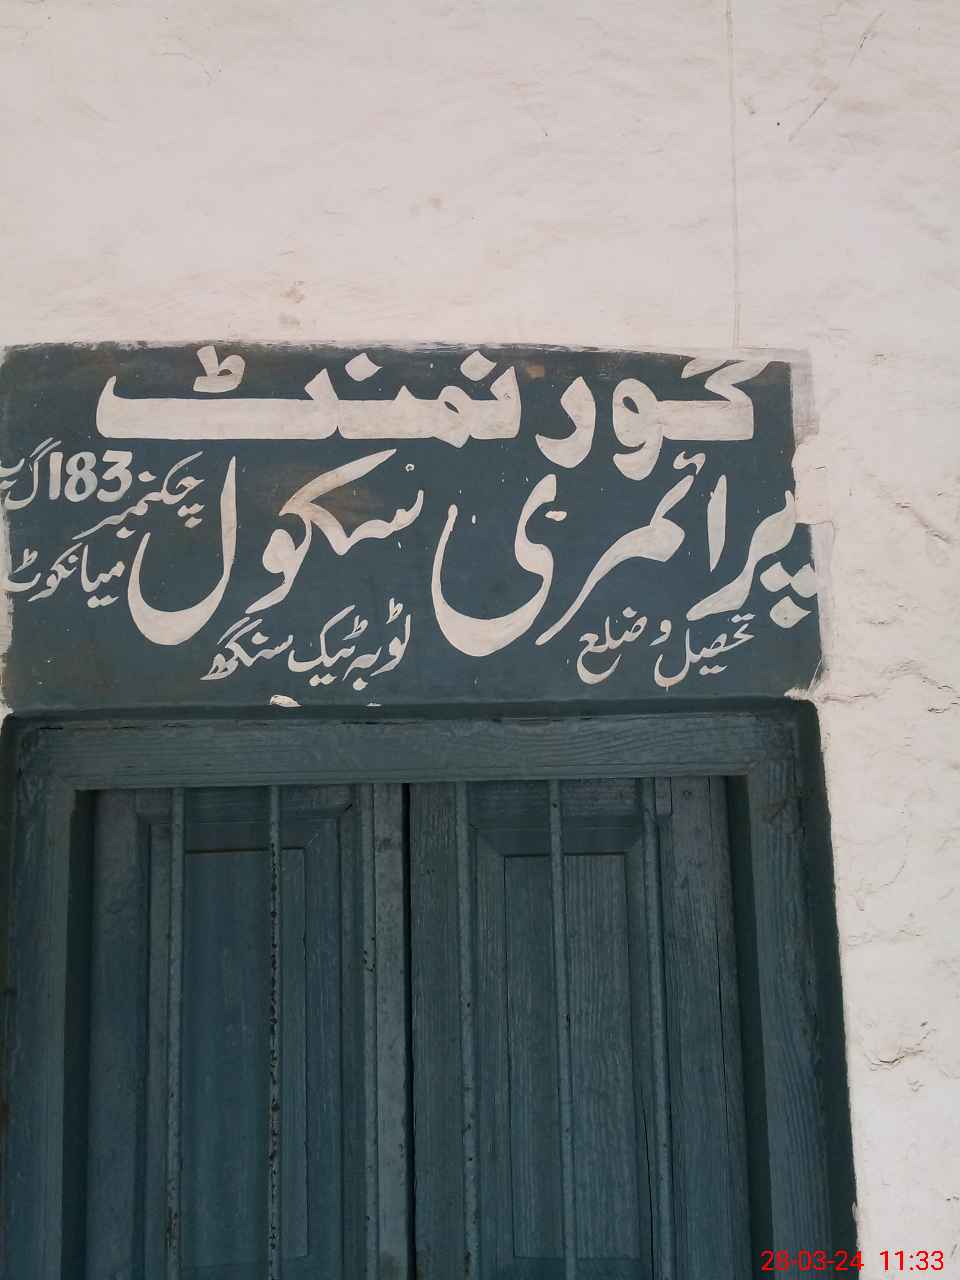 گورنمنٹ
پرائمری سکول
چکنمبر 183 گ ب
میانکوٹ
تحصیل و ضلع ٹوبہ ٹیک سنگھ
28-03-24 11:33